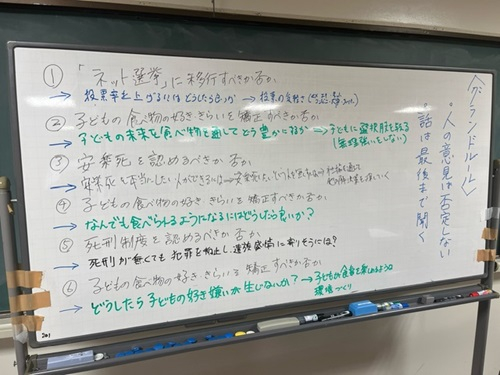 〈グランドルール〉
・人の意見は否定しない
・話は最後まで聞く
① 「ネット選挙」に移行すべきか否か
→ 投票率を上げるにはどうしたら良いか → 投票の
② 子どもの食べ物の好き・きらいを矯正すべきか否か
→ 子どもの未来を食べ物を通してどう豊かにするか → 子どもに選択肢を
(無理強いをしない)
③ 安楽死を認めるべきか否か
→ 安楽死を
④ 子どもの食べ物の好き・きらいを矯正すべきか否か
→ なんでも食べられるようになるにはどうしたら良いか?
⑤ 死刑制度を認めるべきか否か
→ 死刑が無くても犯罪を抑止し、遺族感情に寄りそうには?
⑥ 子どもの食べ物の好き・きらいを矯正すべきか否か
→ どうしたら子どもの好き嫌いが生じないか? → 子どもの食事を楽しめるような
環境づくり
201